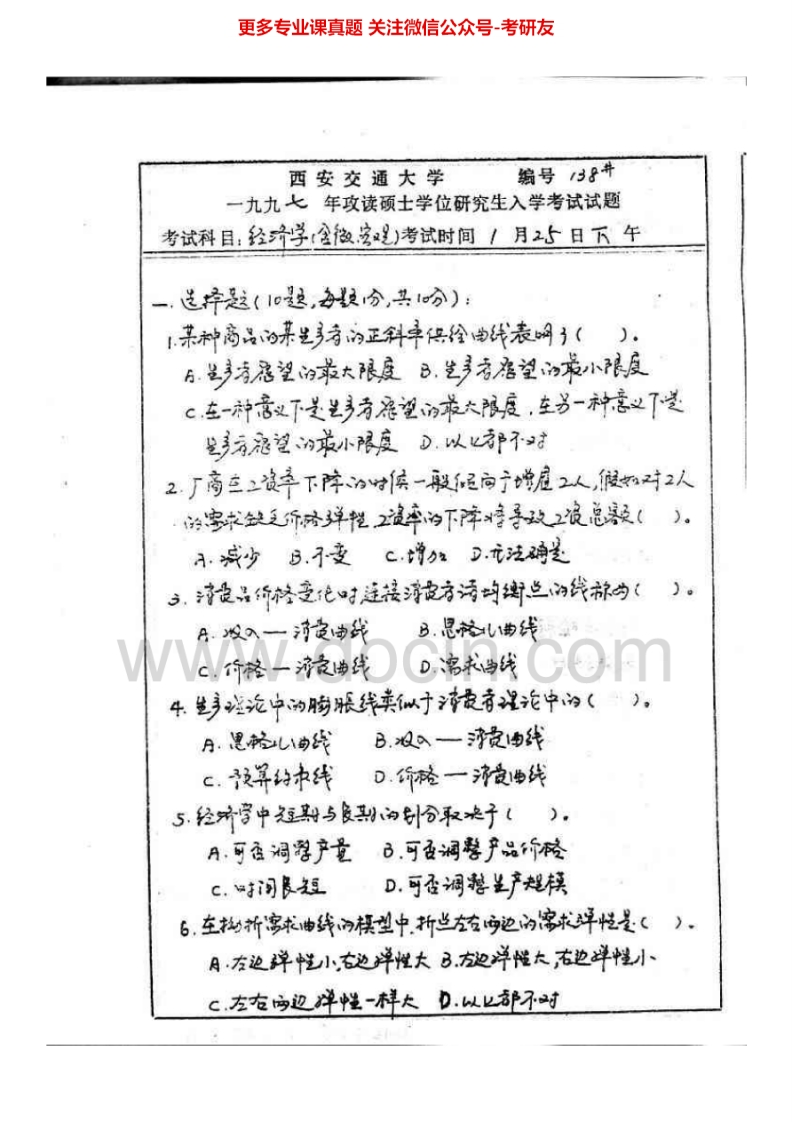 更多专业课真题 关注微信公众号-考研友
西安交通大学 编号 138#
一九九七 年攻读硕士学位研究生入学考试试题
考试科目:经济学(含微,宏观)考试时间 1 月25日下 午
一.选择题(10题,每题1分,共10分):
1.某种商品的某生产者的正斜率供给曲线表明了( )。
A.生产者愿望的最大限度 B.生产者愿望的最小限度
C.在一种意义下是生产者愿望的最大限度,在另一种意义下是
生产者愿望的最小限度 D.以上都不对
2.厂商在工资率下降的时候一般倾向于增雇工人,假如对工人
的需求缺乏价格弹性,工资率的下降将导致工资总额( )。
A.减少 B.不变 C.增加 D.无法确定
3.消费品价格变化时,连接消费者诸均衡点的线称为( )。
A.收入—消费曲线 B.恩格儿曲线
C.价格—消费曲线 D.需求曲线
www.docin.com
4.生产理论中的膨胀线类似于消费者理论中的( )。
A.恩格儿曲线 B.收入—消费曲线
C.预算约束线 D.价格—消费曲线
5.经济学中短期与长期的划分取决于( )。
A.可否调整产量 B.可否调整产品价格
C.时间长短 D.可否调整生产规模
6.在拗折需求曲线的模型中,折点左右两边的需求弹性是( )。
A.左边弹性小,右边弹性大 B.左边弹性大,右边弹性小
C.左右两边弹性一样大 D.以上都不对